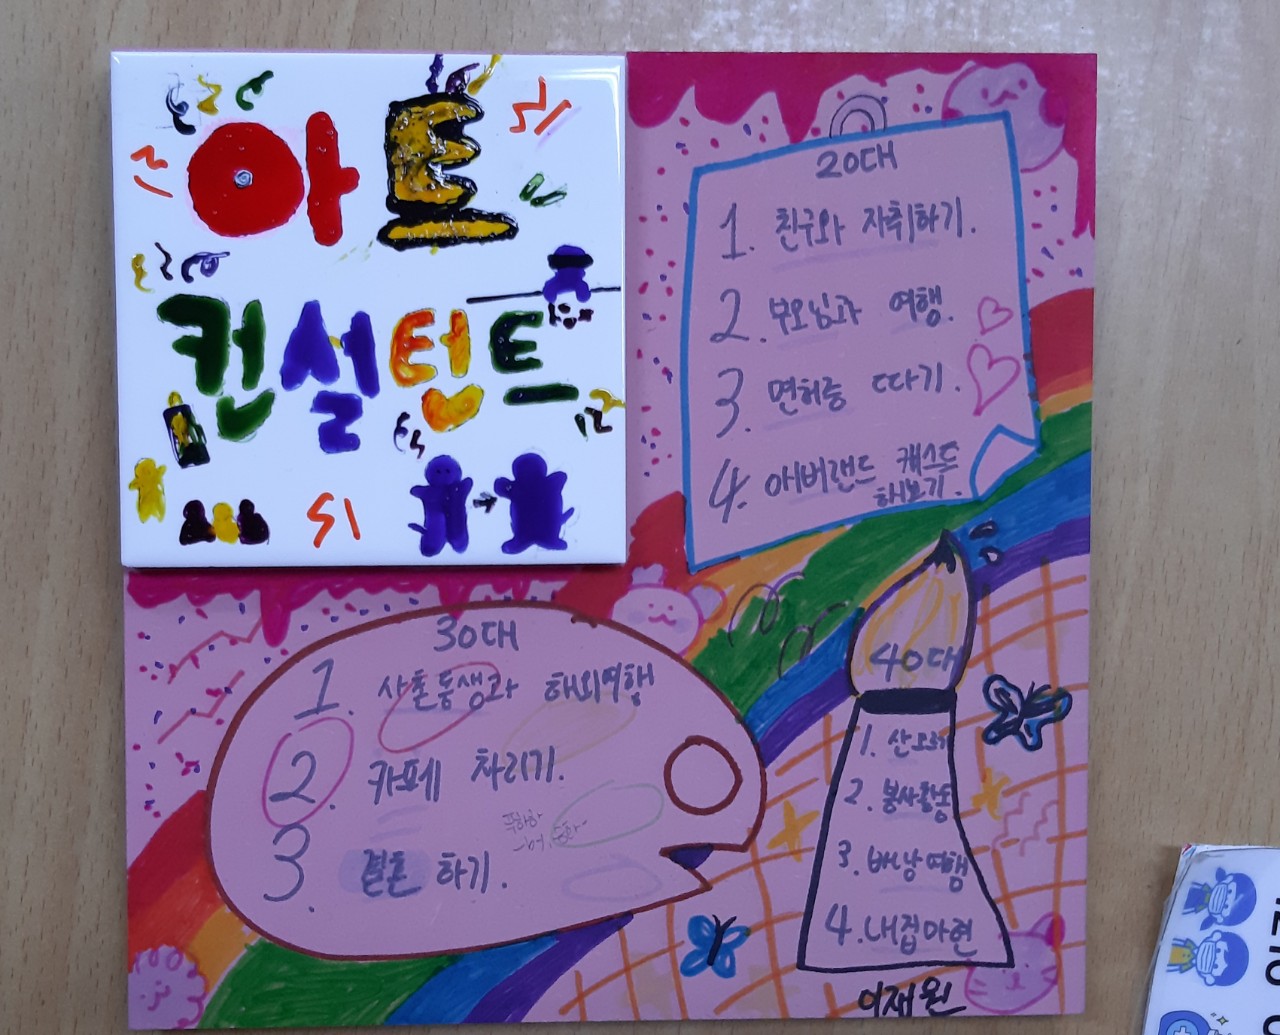 아트
컨설턴트
20대
1. 친구와 자취하기.
2. 부모님과 여행.
3. 면허증 따기.
4. 에버랜드 캐스트
해보기.
30대
1. 사촌동생과 해외여행
2. 카페 차리기.
3. 결혼 하기.
40대
1. 산오르기
2. 봉사활동
3. 배낭여행
4. 내집마련
이재원